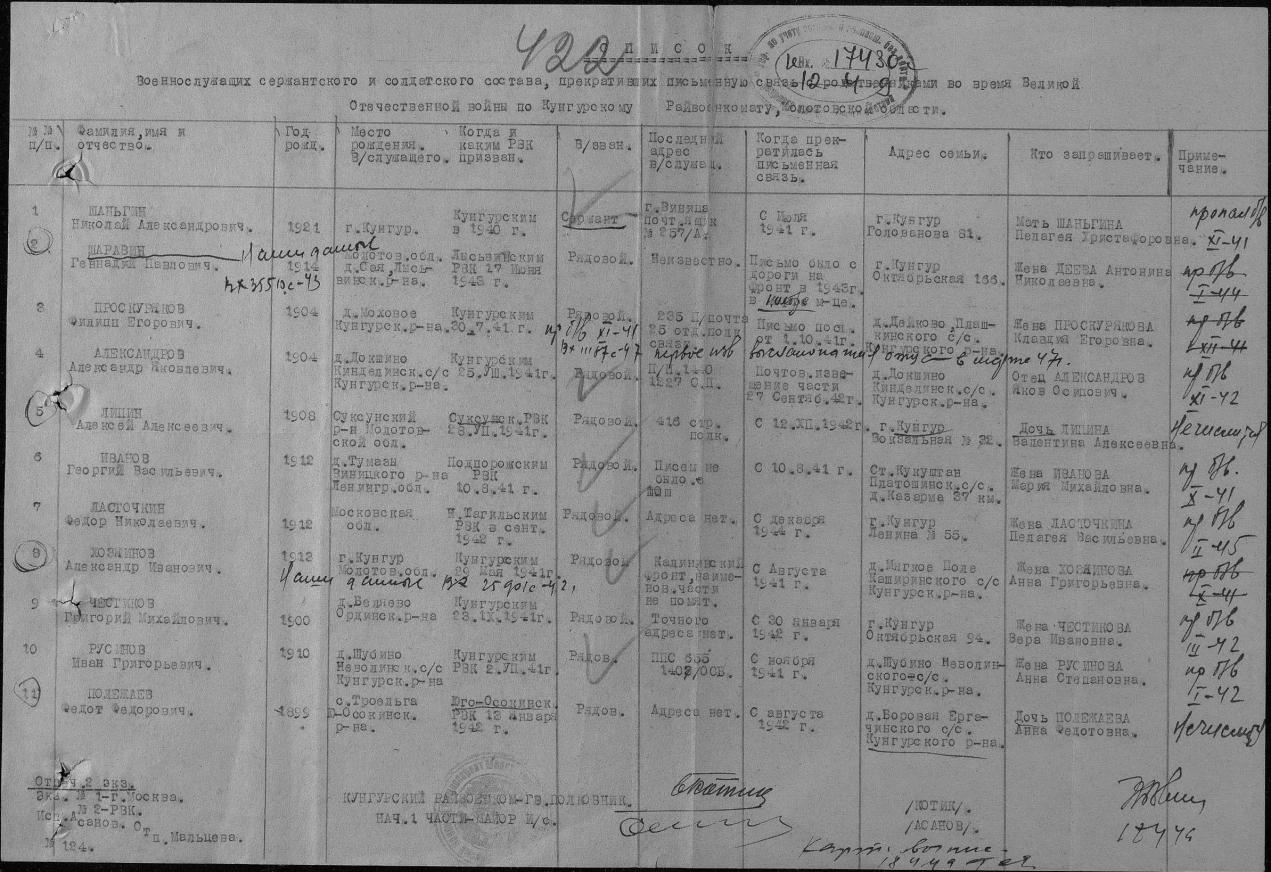 422
СПИСОК
Вх. № 17430
12 4 9
Военнослужащих сержантского и солдатского состава, прекративших письменную связь с родственниками во время Великой
Отечественной войны по Кунгурскому Райвоенкомату, Молотовской области.
№ № п/п. Фамилия, имя и отчество. Год рожд. Место рождения. В/служащего. Когда и каким РВК призван. В/зван. Последний адрес в/служащ. Когда прекратилась письменная связь. Адрес семьи. Кто запрашивает. Примечание.
1 ШАНЬГИН Николай Александрович. 1921 г.Кунгур. Кунгурским в 1940 г. Сержант г.Виница почт.ящик № 257/А. С Июля 1941 г. г.Кунгур Голованова 81. Мать ШАНЬГИНА Пелагея Христафоровна. пропал б/в XI-41
2 ШАРАВИН Геннадий Павлович. 1914 Молотов.обл. д.Сая, Лысьвинск.р-на. Лысьвинским РВК 17 Июня 1943 г. Рядовой. Неизвестно. Письмо было с дороги на фронт в 1943г. в м-це. г.Кунгур Октябрьская 166. Жена ДЕЕВА Антонина Николаевна. пр б/в I-44
Наши данные
3 ПРОСКУРЯКОВ Филипп Егорович. 1904 д.Моховое Кунгурск.р-на. Кунгурским 30.7.41 г. Рядовой. 235 П/почта 25 отд.полк связи. Письмо посл. от 1.10.41г. д.Дейково, Плашкинского с/с. Кунгурского р-на. Жена ПРОСКУРЯКОВА Клавдия Егоровна. пр б/в XII-41
пр б/в XI-41
4 АЛЕКСАНДРОВ Александр Яковлевич. 1904 д.Докшино Кинделинск.с/с Кунгурск.р-на. Кунгурским 25.УШ.1941г. Рядовой. П/П.1440 1227 С.П. Почтов.извещение части 27 Сентяб.42г. д.Докшино Кинделинск.с/с Кунгурск.р-на. Отец АЛЕКСАНДРОВ Яков Осипович. пр б/в XI-42
5 ЛИПИН Алексей Алексеевич. 1908 Суксунский р-н Молотовской обл. Суксунск.РВК 28.УП.1941г. Рядовой. 416 стр. полк. С 12.ХП.1942г. г.Кунгур Вокзальная № 32. Дочь ЛИПИНА Валентина Алексеевна.
6 ИВАНОВ Георгий Васильевич. 1912 д.Тумазы Виницкого р-на Ленингр.обл. Подпорожским РВК 10.8.41 г. Рядовой. Писем не было С 10.8.41 г. Ст.Кукуштан Платошинск.с/с. д.Казарма 37 км. Жена ИВАНОВА Мария Михайловна. пр б/в. X-41
7 ЛАСТОЧКИН Федор Николаевич. 1912 Московская обл. Н.Тагильским РВК в сент. 1942 г. Рядовой. Адреса нет. С декабря 1944 г. г.Кунгур Ленина № 55. Жена ЛАСТОЧКИНА Пелагея Васильевна. пр б/в II-45
8 ХОЗЯИНОВ Александр Иванович. 1913 г.Кунгур Молотов.обл. Кунгурским 29 Мая 1941г. Рядовой Калининский фронт, наименов.части не помят. С Августа 1941 г. д.Мягкое Поле Каширинского с/с Кунгурск.р-на. Жена ХОЗЯИНОВА Анна Григорьевна. пр б/в X-41
Наши данные
9 ЧЕСТИКОВ Григорий Михайлович. 1900 д.Беляево Ординск.р-на Кунгурским 23.IX.1941г. Рядовой. Точного адреса нет. С 30 января 1942 г. г.Кунгур Октябрьская 94. Жена ЧЕСТИКОВА Вера Ивановна. пр б/в III-42
10 РУСИНОВ Иван Григорьевич. 1910 д.Шубино Неволинск.с/с Кунгурск.р-на Кунгурским РВК 2.УП.41г. Рядов. ППС 665 1408/ОСБ. С ноября 1941 г. д.Шубино Неволинского с/с. Кунгурск.р-на. Жена РУСИНОВА Анна Степановна. пр б/в I-42
11 ПОЛЕЖАЕВ Федот Федорович. 1899 с.Троельга Ю-Осокинск. р-на. Юго-Осокинск. РВК 13 Января 1942 г. Рядов. Адреса нет. С августа 1942 г. д.Боровая Ергачинского с/с. Кунгурского р-на. Дочь ПОЛЕЖАЕВА Анна Федотовна.
Отпеч.2 экз.
Экз. № 1-г.Москва.
№ 2-РВК.
Исп.Асанов. Отп.Мальцева.
№ 124.
КУНГУРСКИЙ РАЙВОЕНКОМ-ГВ.ПОЛКОВНИК. /КОТИК/.
НАЧ.1 ЧАСТИ-МАЙОР И/С. /АСАНОВ/.